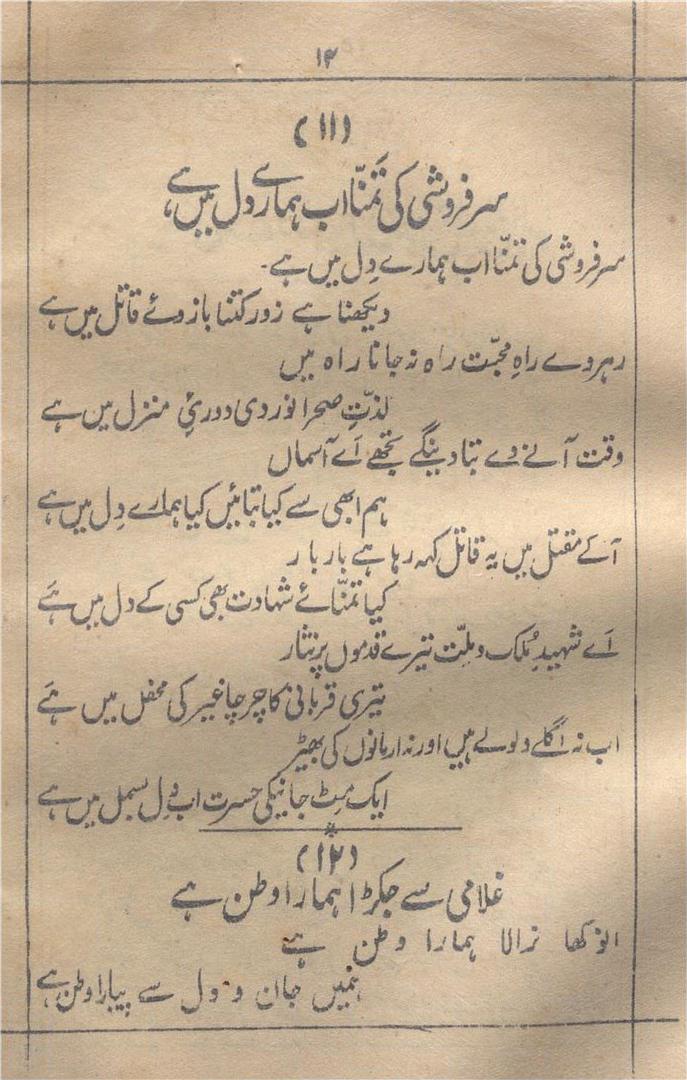 ۱۴
(۱۱)
سرفروشی کی تَمنّا اب ہمارے دل میں ہے
سرفروشی کی تمنّا اب ہمارے دِل میں ہے۔
دیکھنا ہے زور کتنا بازوئے قاتل میں ہے
رہروے راہِ محبّت راہ نہ جانا راہ میں
لذّتِ صحرا نوردی دوریٔ منزل میں ہے
وقت آنے دے بتا دینگے تجھے اَے آسماں
ہم ابھی سے کیا بتائیں کیا ہمارے دِل میں ہے
آکے مقتل میں یہ قاتل کہہ رہا ہے بار بار
کیا تمنّائے شہادت بھی کسی کے دل میں ہَے
اَے شہیدِ مُلک و ملّت تیرے قدموں پر نثار
تیری قربانی کا چرچا غیر کی محفل میں ہَے
اب نہ اگلے ولولے ہیں اور نہ ارمانوں کی بھیڑ
ایک مِٹ جانیکی حسرت اب دِل بسمل میں ہے
(۱۲)
غلامی سے جکڑا ہمارا وطن ہے
انوکھا نرالا ہمارا وطن ہے
ہمیں جان و دل سے پیارا وطن ہے